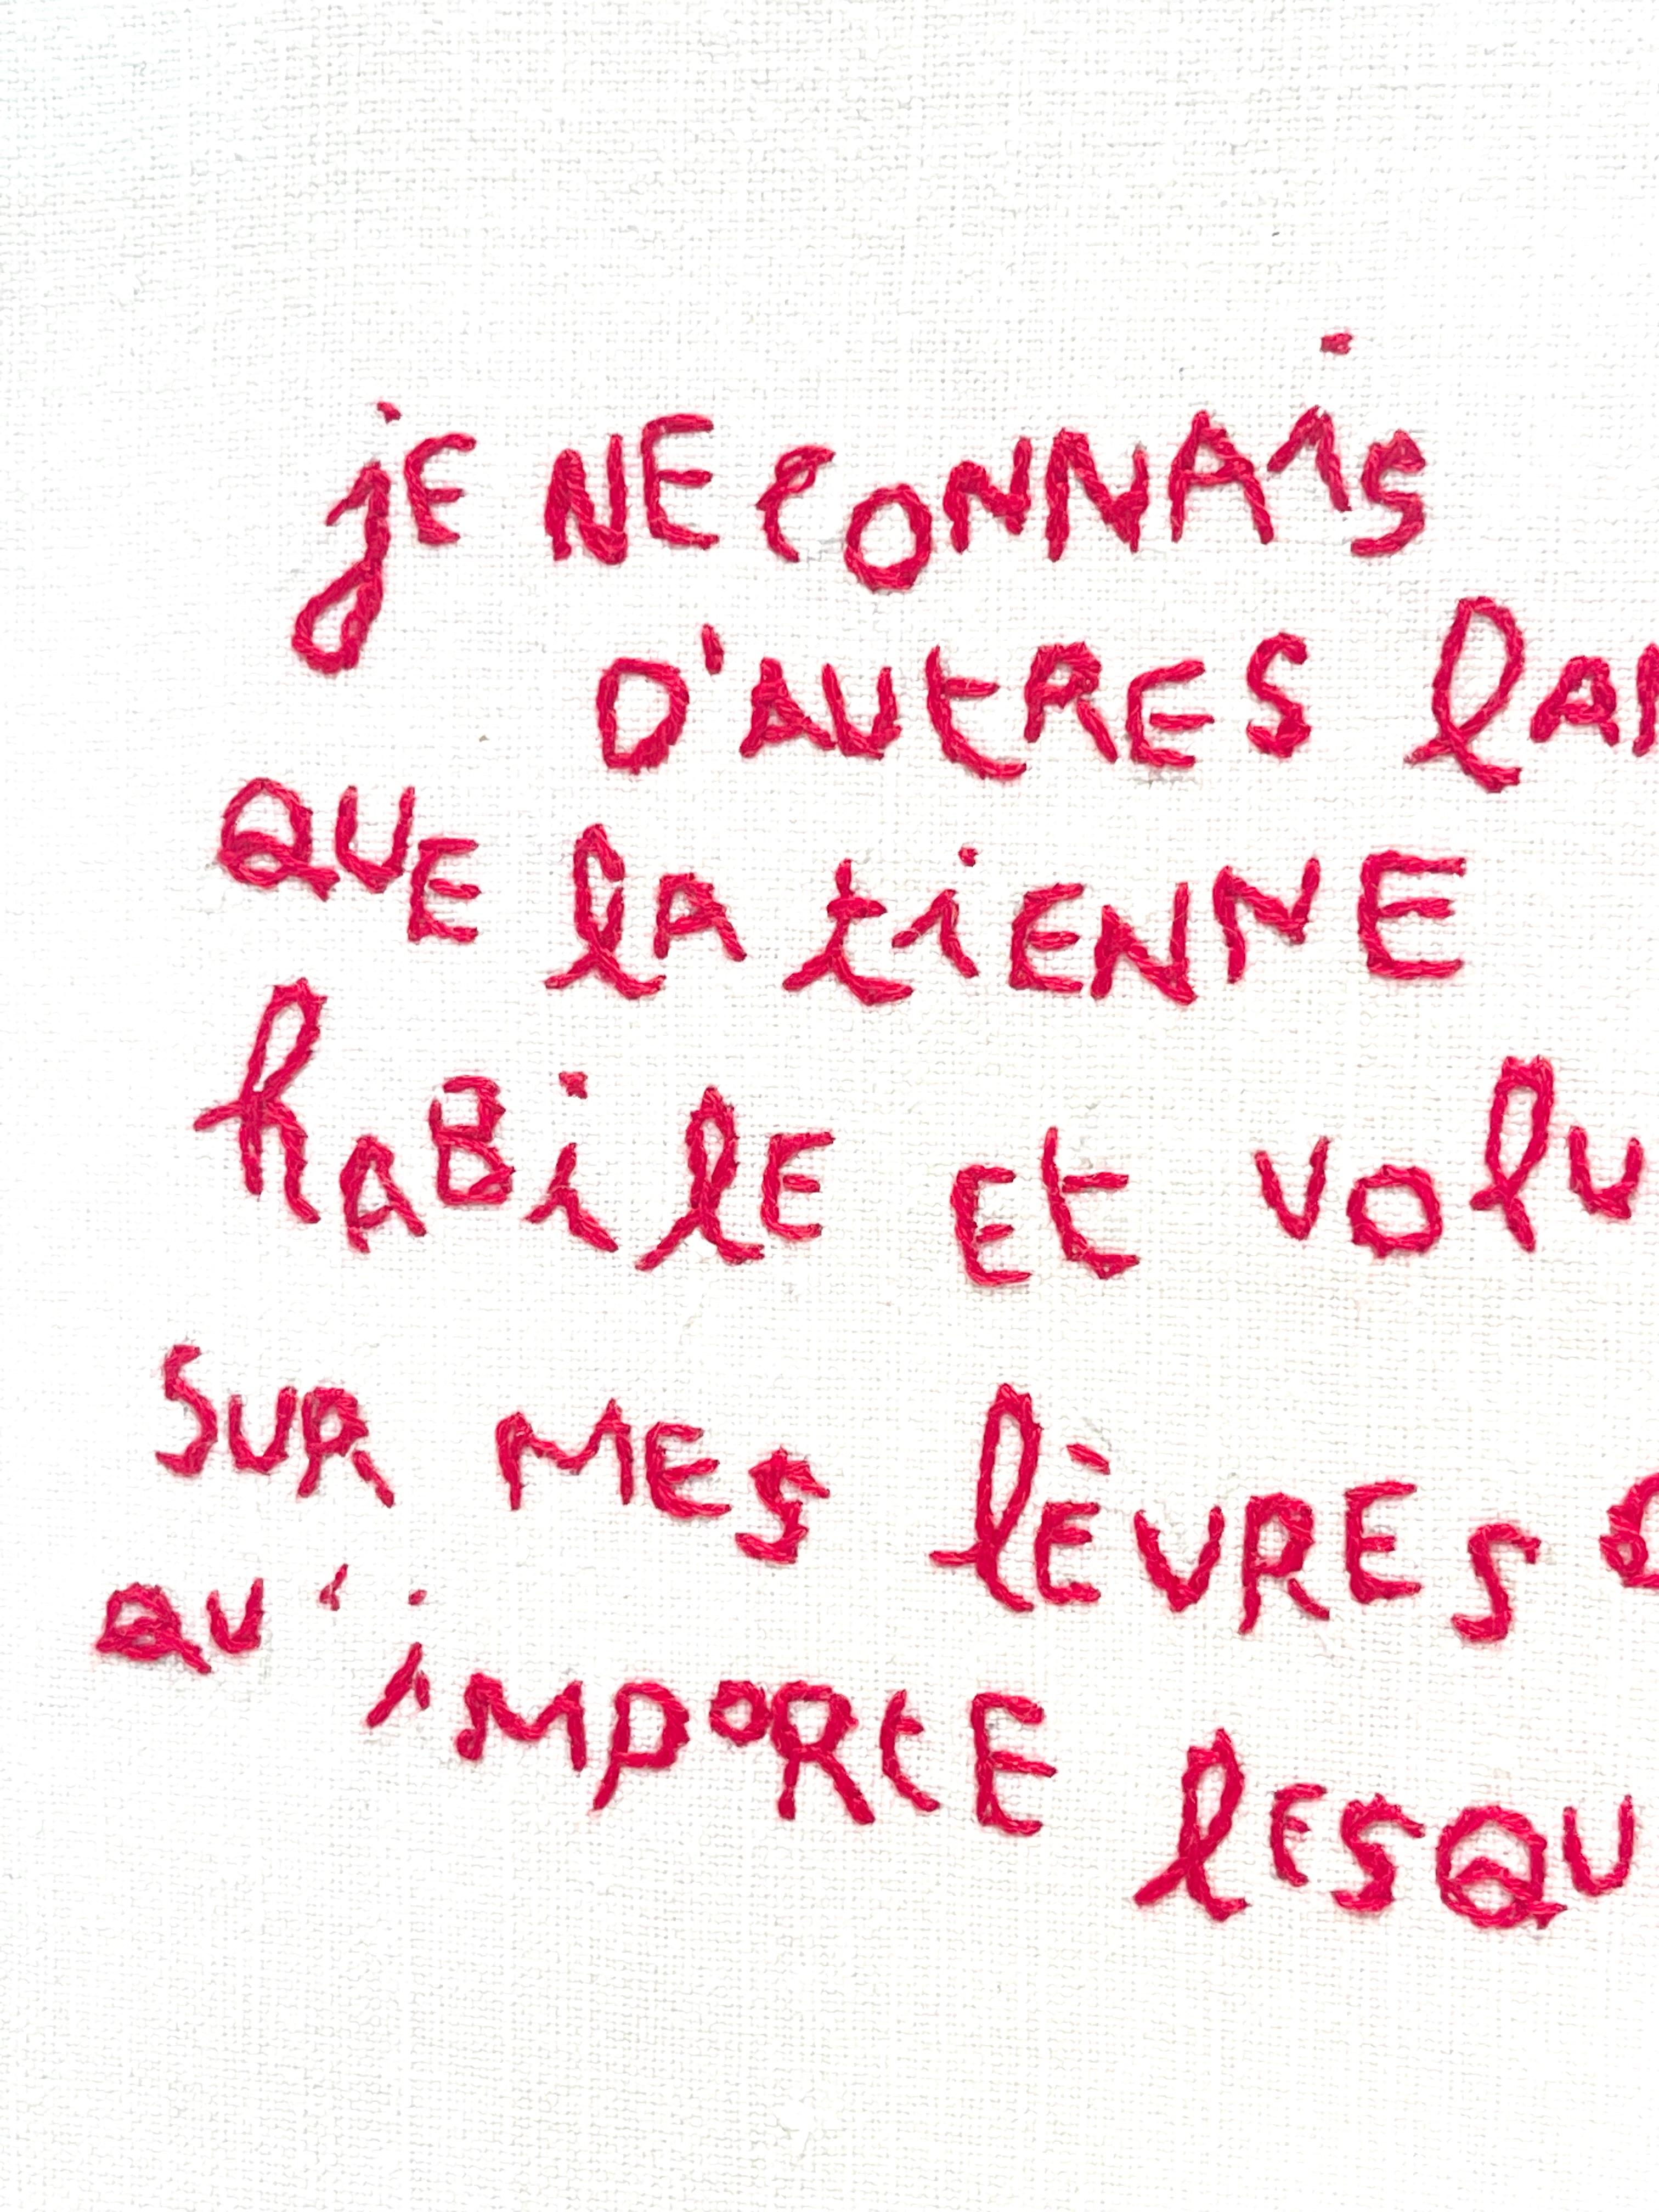 jE NE CONNAis
D'AUtRES lAN
QUE lA tiENNE
hABilE Et VOlU
SUR MES lÈVRES
QU'iMPORtE lESQU